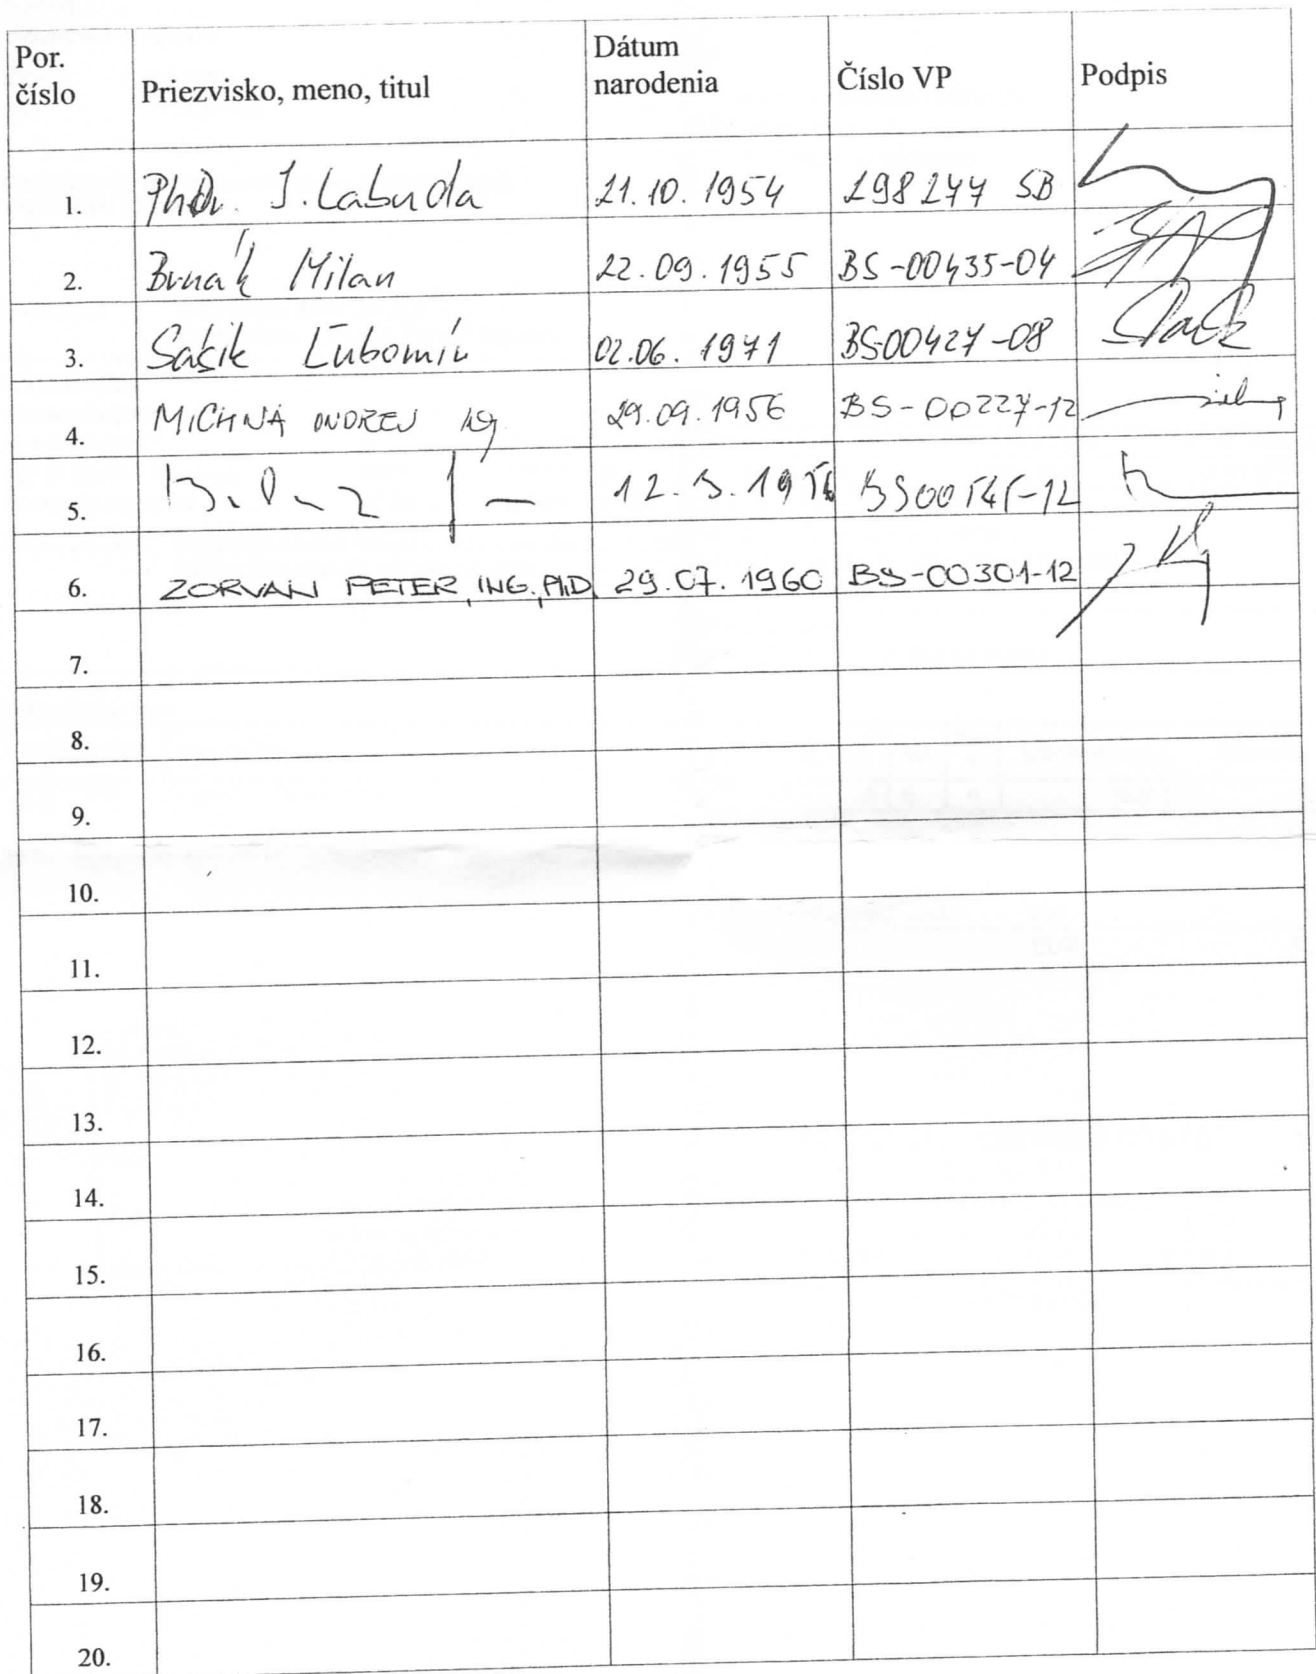 Por. číslo Priezvisko, meno, titul Dátum narodenia Číslo VP Podpis
1. PhDr. J. Labuda 21.10.1954 298244 SB
2. Brnák Milan 22.09.1955 BS-00435-04
3. Sásik Ľubomír 02.06.1971 BS00427-08
4. MICHNA ONDREJ Ing 29.09.1956 BS-00227-12
5. 12.3.1956
6. ZORVAN PETER, ING., PhD. 29.07.1960 BS-00301-12
7.
8.
9.
10.
11.
12.
13.
14.
15.
16.
17.
18.
19.
20.